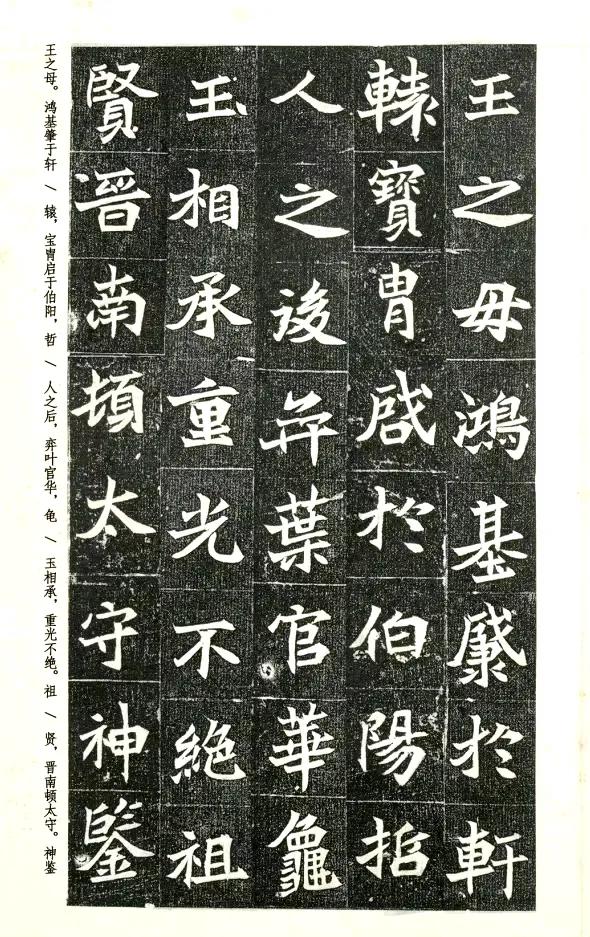 王之毋鴻基肇於軒
轅寶胄啟於伯陽哲
人之後弈葉官華龜
玉相承重光不絶祖
賢晉南頓太守神鑒
王之母。鸿基肇于轩 \ 辕，宝胄启于伯阳，哲 \ 人之后，弈叶官华，龟 \ 玉相承，重光不绝。祖 \ 贤，晋南顿太守。神鉴